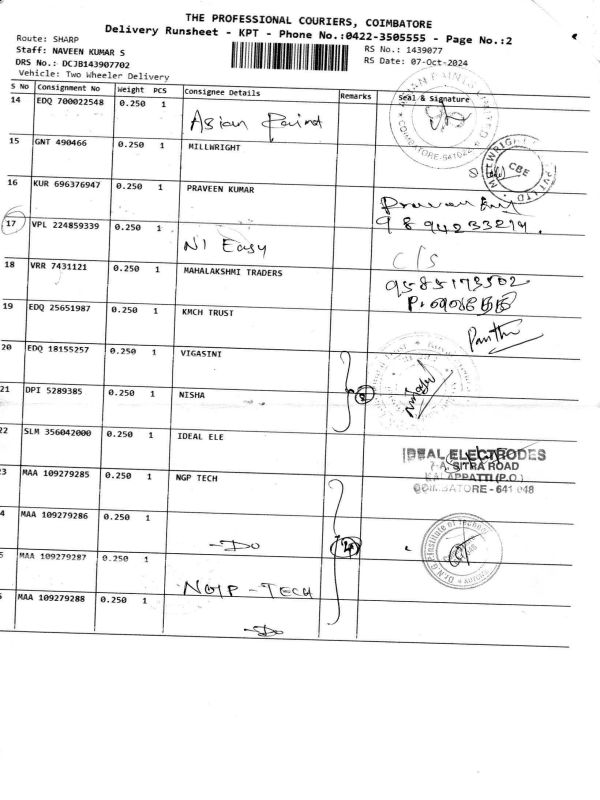 THE PROFESSIONAL COURIERS, COIMBATORE
Delivery Runsheet - KPT - Phone No.:0422-3505555 - Page No.:2
Route: SHARP
Staff: NAVEEN KUMAR S
RS No.: 1439077
DRS No.: DCJB143907702
RS Date: 07-Oct-2024
Vehicle: Two Wheeler Delivery
S No Consignment No Weight PCS Consignee Details Remarks Seal & Signature
14 EDQ 700022548 0.250 1 Asian Paint
COIMBATORE-641022
15 GNT 490466 0.250 1 MILLWRIGHT
CBE
16 KUR 696376947 0.250 1 PRAVEEN KUMAR
17 VPL 224859339 0.250 1 NI Easy
c/s
18 VRR 7431121 0.250 1 MAHALAKSHMI TRADERS
9585173502
19 EDQ 25651987 0.250 1 KMCH TRUST
20 EDQ 18155257 0.250 1 VIGASINI
21 DPI 5289385 0.250 1 NISHA
22 SLM 356042000 0.250 1 IDEAL ELE
IDEAL ELECTRODES
7-A, SITRA ROAD
KALAPPATTI (P.O.)
COIMBATORE - 641 048
23 MAA 109279285 0.250 1 NGP TECH
4 MAA 109279286 0.250 1 -Do
4
5 MAA 109279287 0.250 1 NGP - TECH
6 MAA 109279288 0.250 1 -Do